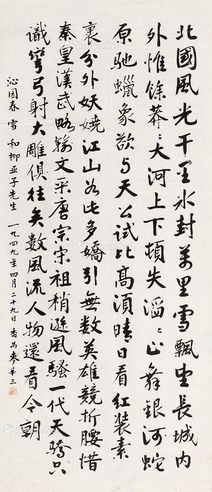 北國風光千里冰封萬里雪飄望長城內
外惟餘莽〻大河上下頓失滔〻山舞銀河蛇
原馳蠟象欲与天公試比高須晴日看紅裝素
裹分外妖嬈江山如此多嬌引無數英雄競折腰惜
秦皇漢武略輸文采唐宗宋祖稍遜風騷一代天驕只
識彎弓射大雕俱往矣數風流人物還看今朝
沁園春 雪 和柳亞子先生 一九四九年四月二十九日